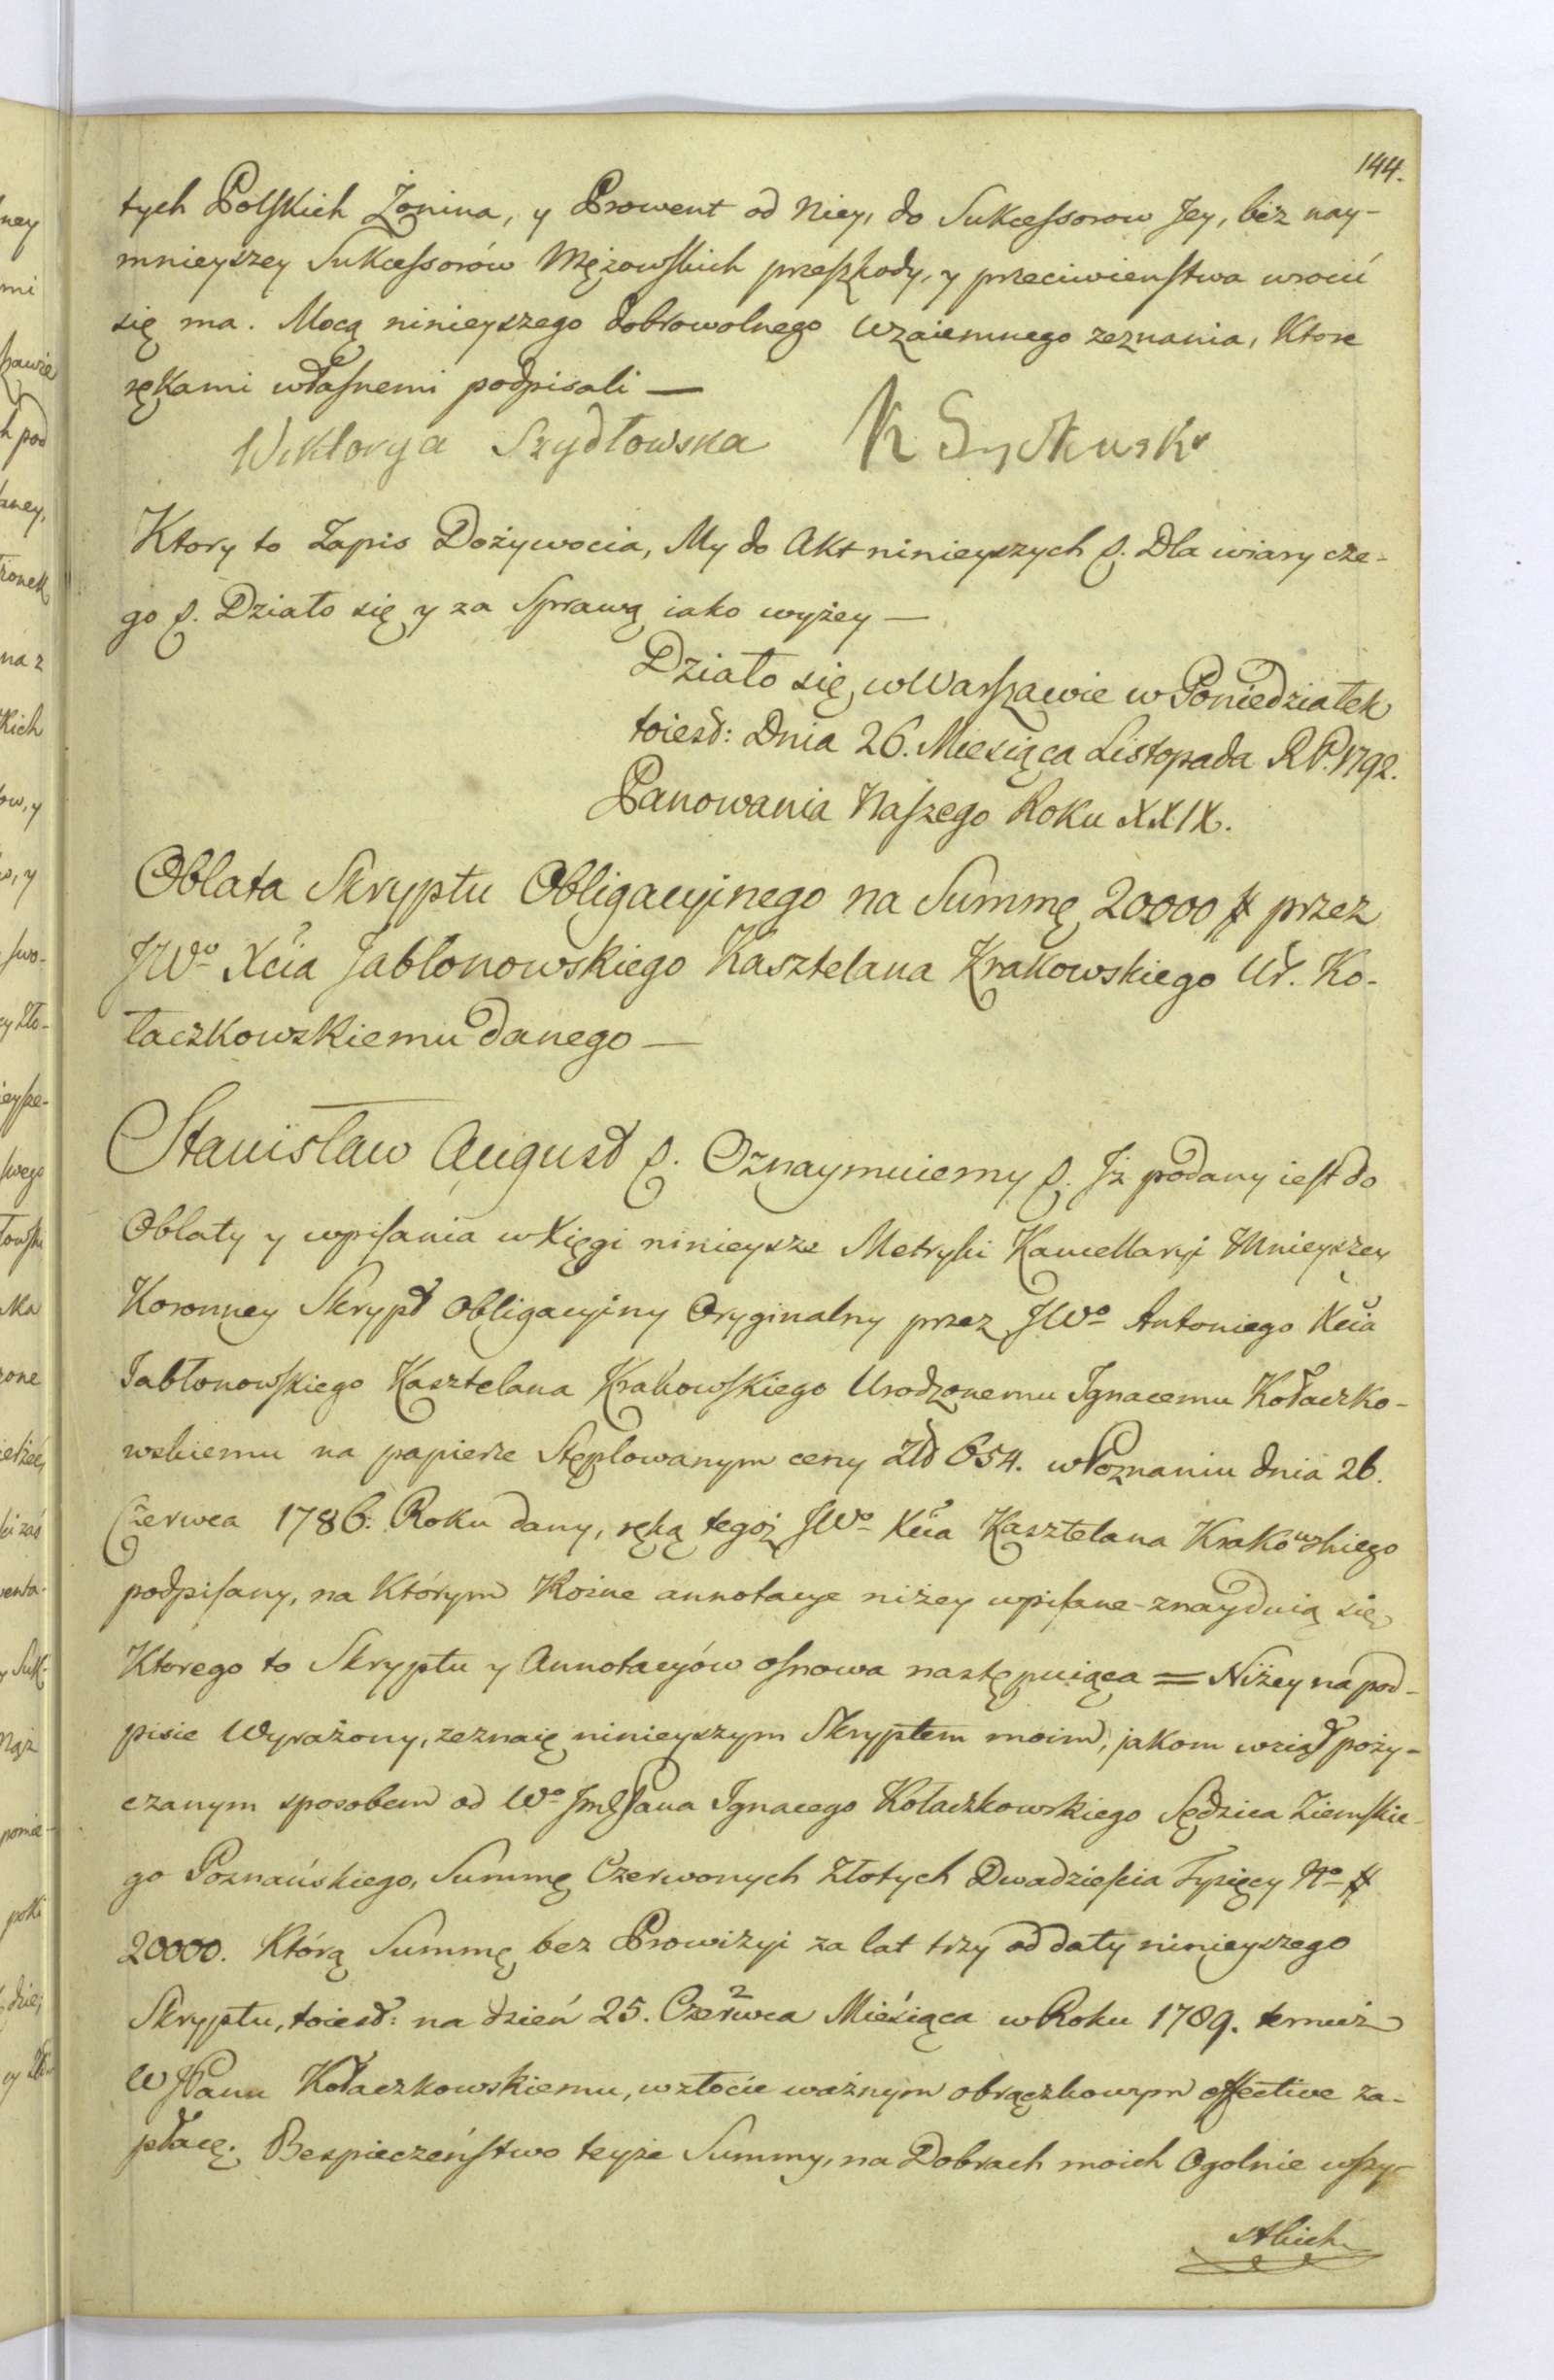 144.
tych Polskich Żonina, y Prowent od Niey, do Sukcessorow Jey, bez nay-
mnieyszey Sukcessorów Mężowskich przeszkody, y przeciwienstwa wrocić
się ma. Mocą ninieyszego dobrowolnego wzaiemnego zeznania, Ktore
rękami własnemi podpisali —
Wiktorya Szydłowska K Szydłowski
Ktory to Zapis Dożywocia, My do Akt ninieyszych p. Dla wiary cze-
go p. Działo się y za Sprawą iako wyżey —
Działo się w Warszawie w Poniedziałek
toiest: Dnia 26. Miesiąca Listopada R.P. 1792.
Panowania Naszego Roku XXIX.
Oblata Skryptu Obligacyjnego na Summę 20000 # przez
JWo Xcia Jabłonowskiego Kasztelana Krakowskiego Ur. Ko-
łaczkowskiemu danego —
Stanisław August p. Oznaymuiemy p. Jż podany iest do
Oblaty y wpisania w Xięgi ninieysze Metryki Kancellaryi Mnieyszey
Koronney Skrypt Obligacyiny Oryginalny przez JWo Antoniego Xcia
Jabłonowskiego Kasztelana Krakowskiego Urodzonemu Jgnacemu Kołaczko-
wskiemu na papierze Stęplowanym ceny Złł 654. w Poznaniu dnia 26.
Czerwca 1786. Roku dany, ręką tegoż JWo Xcia Kasztelana Krakowskiego
podpisany, na Którym Rożne annotacye niżey wpisane znayduią się
Ktorego to Skryptu y Annotacyów osnowa następuiąca = Niżey na pod-
pisie Wyrażony, zeznaię ninieyszym Skryptem moim, jakom wziął poży-
czanym sposobem od Wo Jmć Pana Jgnacego Kołaczkowskiego Sędzica Ziemskie-
go Poznańskiego, Summę Czerwonych Złotych Dwadzieścia Tysięcy No #
20000. Którą Summę bez Prowizyi za lat trzy od daty ninieyszego
Skryptu, toiest: na dzień 25. Czerwca Miesiąca w Roku 1789. temuż
W JPanu Kołaczkowskiemu, w złocie ważnym obrączkowym effective za-
płacę. Bespieczeństwo teyże Summy, na Dobrach moich Ogolnie wszy-
stkich